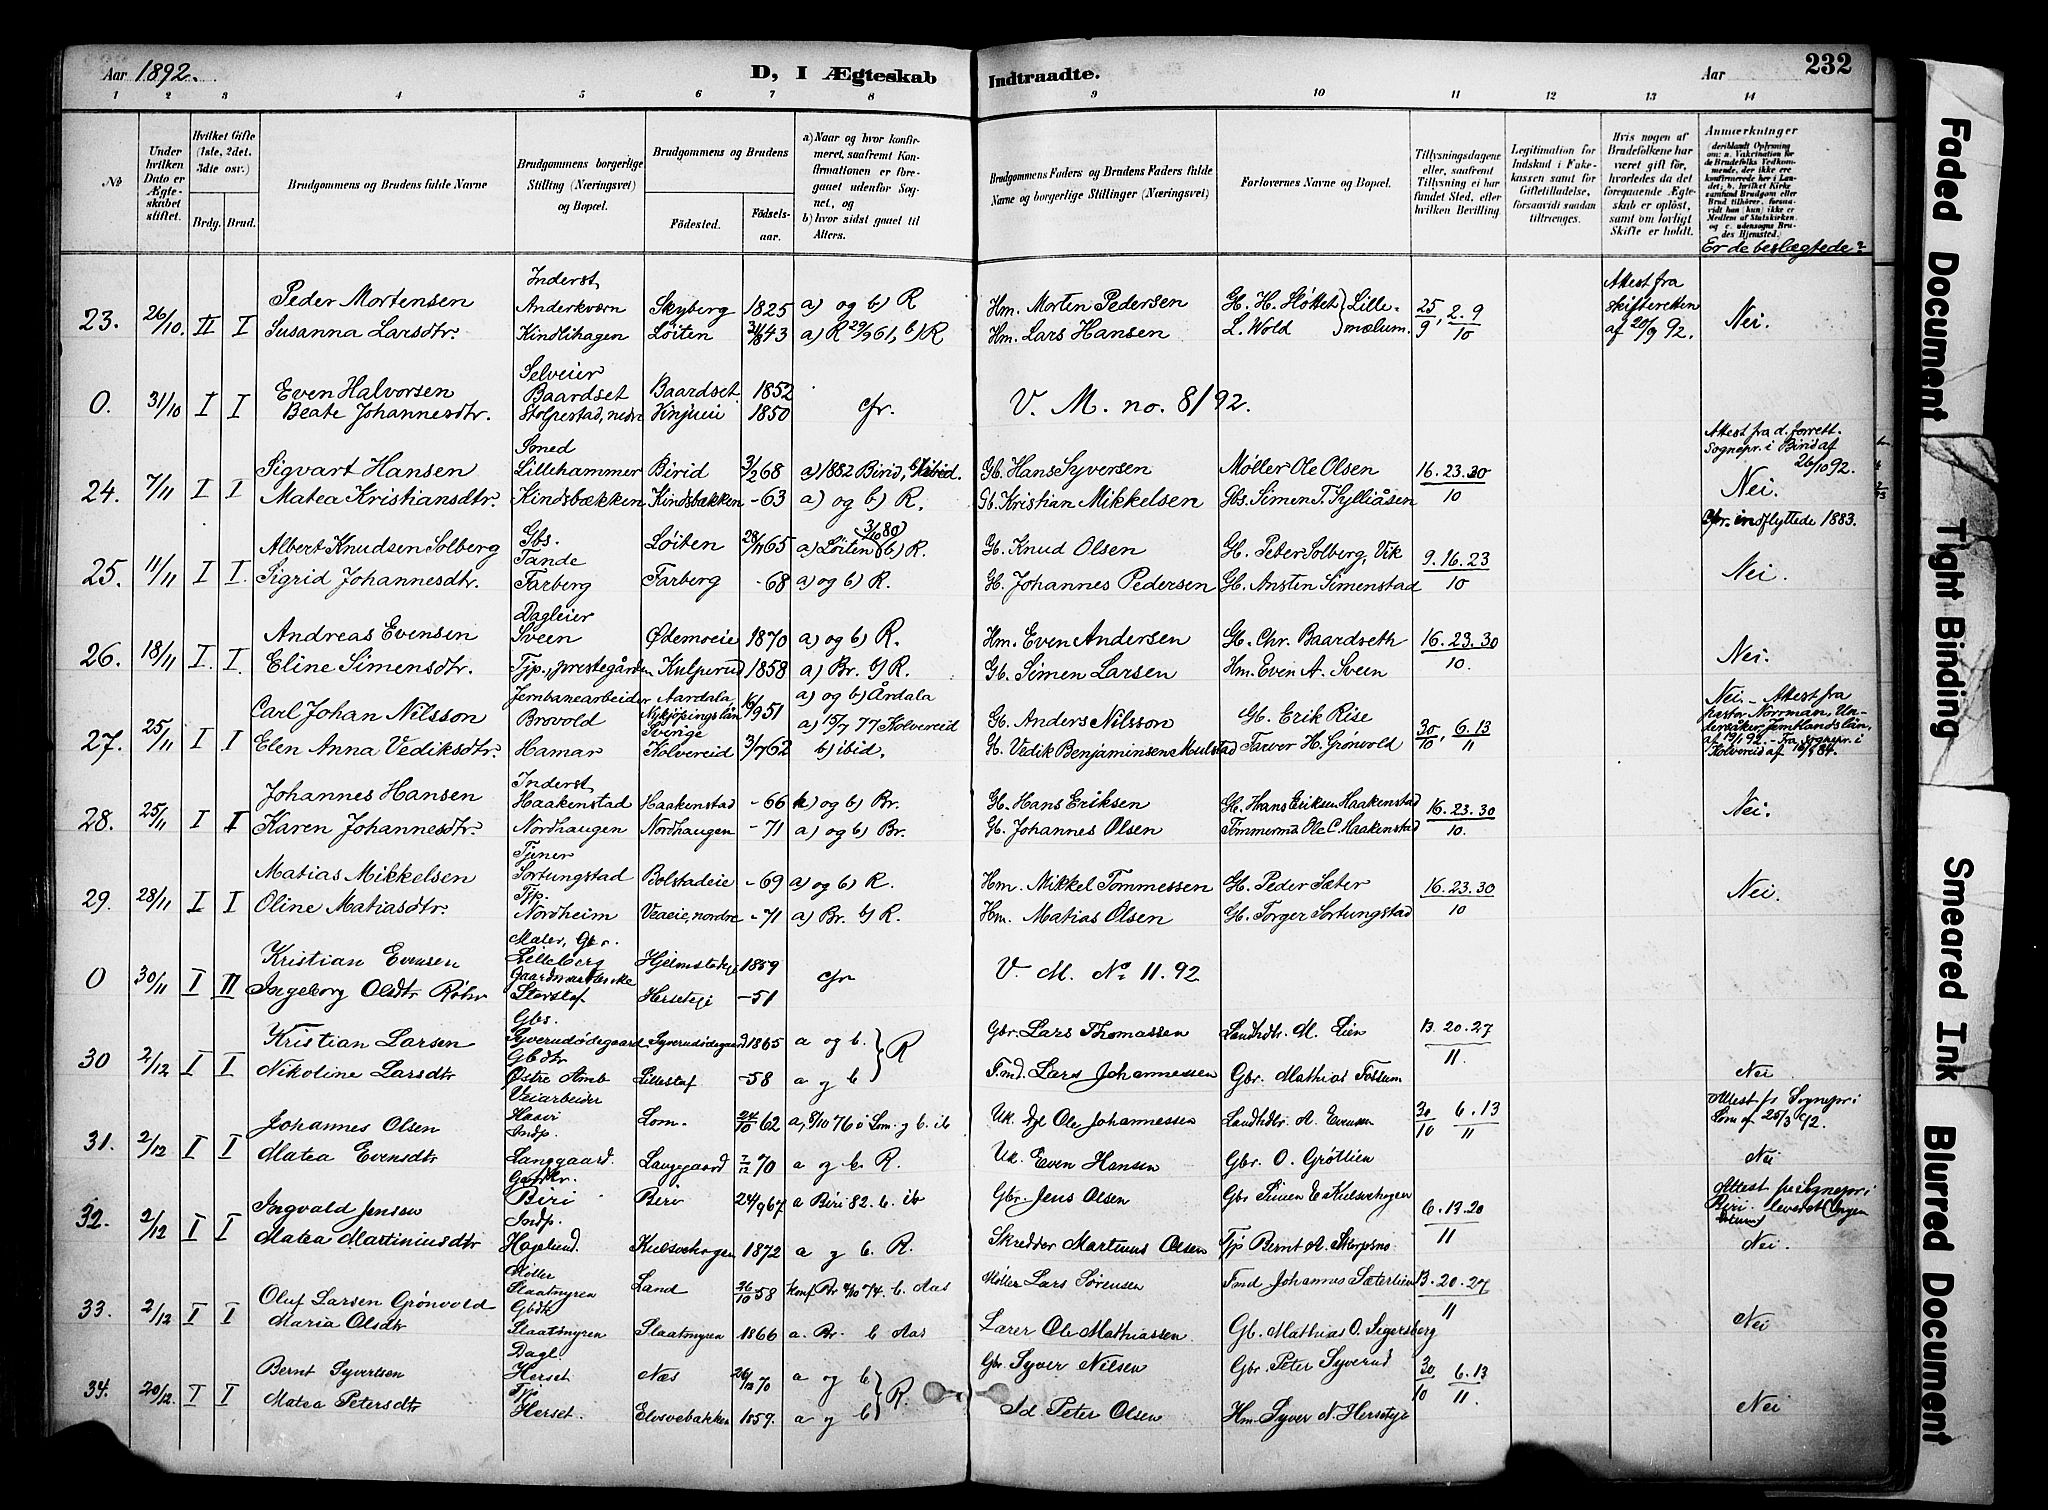 Aar 1892.
D, I Ægteskab Indtraadte.
Aar
232
1 2 3 4 5 6 7 8 9 10 11 12 13 14
No
Under hvilken Dato er Ægteskabet stiftet.
Hvilket Gifte (1ste, 2det, 3die osv.)
Brdg. Brud.
Brudgommens og Brudens fulde Navne
Brudgommens borgerlige Stilling (Næringsvei) og Bopæl.
Brudgommens og Brudens
Fødested.
Fødselsaar.
a) Naar og hvor konfirmeret, saafremt Konfirmationen er foregaaet udenfor Sognet, og
b) hvor sidst gaaet til Alters.
Brudgommens Faders og Brudens Faders fulde Navne og borgerlige Stillinger (Næringsvei)
Forlovernes Navne og Bopæl.
Tillysningsdagene eller, saafremt Tillysning ei har fundet Sted, efter hvilken Bevilling
Legitimation for Indskud i Enkekassen samt for Giftetilladelse, forsaavidt saadan tiltrænges.
Hvis nogen af Brudefolkene har været gift før, hvorledes da det foregaaende Ægteskab er opløst, samt om lovligt Skifte er holdt.
Anmærkninger
Er de beslægtede?
23. 26/10. II I Peder Mortensen Inderst Anderkværn Skyberg 1825 a) og b) R Hm. Morten Pedersen Gb. H. Slottet Lillemælum. 25/9, 2.9/10 Attest fra skifteretten af 20/9 92. Nei.
Susanna Larsdtr. Kindlihagen Løiten 3/8 43 a) R 29/9 61, b) R Hm. Lars Hansen L. Wold
0. 31/10 I I Even Halvorsen Selveier Baardset Baardset 1852 cfr. V. M. no. 8/92.
Beate Johannesdtr. Stolpestad, nedre 1850
24. 7/11 I I Sigvart Hansen Smed Lillehammer Birid 3/2 68 a) 1882 Birid, b) ibid. Gb. Hans Syversen Møller Ole Olsen 16.23.30/10 Attest fra d. forrett. Sognepr. i Birid af 26/10 92. Nei.
Matea Kristiansdtr. Kindsbækken Kindsbakken -63 a) og b) R. Gb. Kristian Mikkelsen Gbs. Simen T. Sylliåsen
25. 11/11 I I. Albert Knudsen Solberg Gbs. Tande Løiten 28/11 65 a) Løiten (3/10 80) b) R. Gb. Knud Olsen Gb. Peter Solberg, Vik 9.16.23/10 Cfr. indflyttede 1883. Nei.
Sigrid Johannesdtr. Farberg Farberg -68 a) og b) R. Gb. Johannes Pedersen Gb. Ansten Simenstad
26. 18/11 I. I. Andreas Evensen Dagleier Sveen Ødemoeie 1870 a) og b) R. Hm. Even Andersen Gb. Chr. Baardseth 16.23.30/10. Nei.
Eline Simensdtr. Tjp., prestegården Kulperud 1858 a) Br. b) R. Gb. Simen Larsen Hm. Even A. Sveen
27. 25/11 I I Carl Johan Nilsson Jernbanearbeider Brovold Aardala Nykjøpingslän Sverige 16/9 51 a) og b) Årdala Gb. Anders Nilsson Gb. Erik Rise 30/10, 6.13/11 Nei. - Attest fra pastor Norrman, Undersåker, Jemtlands län, af 19/1 92. - Fra sognepr. i Kolvereid af 16/9 84.
Elen Anna Vediksdtr. Hamar Kolvereid 3/7 62 a) 15/7 77 Kolvereid b) ibid. Gb. Vedik Benjaminsen Mulstad Farver H. Grønvold
28. 25/11 I I Johannes Hansen Inderst Haakenstad Haakenstad -66 a) og b) Br. Gb. Hans Eriksen Gb. Hans Eriksen Haakenstad 16.23.30/10. Nei.
Karen Johannesdtr. Nordhaugen Nordhaugen -71 a) og b) Br. Gb. Johannes Olsen Tømmermd. Ole C. Haakenstad
29. 28/11 I I Matias Mikkelsen Tjener Sortungstad Bolstadeie -69 a) og b) R. Hm. Mikkel Tommessen Gb. Peder Sæter 16.23.30/10 Nei.
Oline Matiasdtr. Tjp. Nordheim Veaeie, nordre -71 a) Br. b) R. Hm. Matias Olsen Gb. Torger Sortungstad
0 30/11 I II Kristian Evensen Maler, Gbr. Lilleberg Hjelmstadeje 1859 cfr V. M. No. 11.92
Ingeborg Olsdtr Røhr Storstaf Herseteje -51
30 2/12 I I Kristian Larsen Gbs. Syverudødegaard Syverudødegaard 1865 a og b. R Gbr. Lars Thomassen Landhdlr. M. Lien 13.20.27/11. Nei
Nikoline Larsdtr Gbdtr Østre Amb Lillestaf -58 a og b Fmd. Lars Johannessen Gbr. Mathias Fossum
31. 2/12 I I Johannes Olsen Veiarbeider Haavi Lom. 24/10 62 a, 8/10 76 i Lom. og b. ib Uk. Ole Johannessen Landhdlr. A. Evensen 30/10 6.13/11 Attest fr Sognepr i Lom af 25/3 92. Nei
Matea Evensdtr Indp. Langgaard. Langgaard 7/12 70 a og b. R. Uk. Even Hansen Gbr. O. Grøtlien
32. 2/12 I I Ingvald Jensen Biri Biri 24/9 67 a Biri 82. b. ib Gbr. Jens Olsen Gbr Simen E Kulsvehagen 6.13.20/11 Attest fr Sognepr i Biri leveret Nei.
Matea Martiniusdtr Indp. Hagelund. Kulsvehagen 1872 a og b. R. Skredder Martinus Olsen Tjp Bernt A. Skerpsno
33. 2/12 I I Oluf Larsen Grønvold Møller Slaatmyren Land 26/10 58 Konf Br 4/10 74. b. Aas Møller Lars Sørensen Fmd Johannes Sæterlien 13.20.27/11 Nei
Maria Olsdtr Gbdtr Slaatmyren Slaatmyren 1866 a. Br. b Aas Lærer Ole Mathiassen Gb. Mathias O. Sigersberg
34. 20/12. I I Bernt Syvertsen Dagl. Herset Næs 26/12 70 a og b R. Gbr. Syver Nilsen Gbr. Peter Syverud 30/10 6.13/11. Nei
Matea Petersdtr Tjp Herset. Elvsvebakken 1859. a og b Peter Olsen Hm. Syver N. Hersetje
Faded Document
Tight Binding
Smeared Ink
Blurred Document